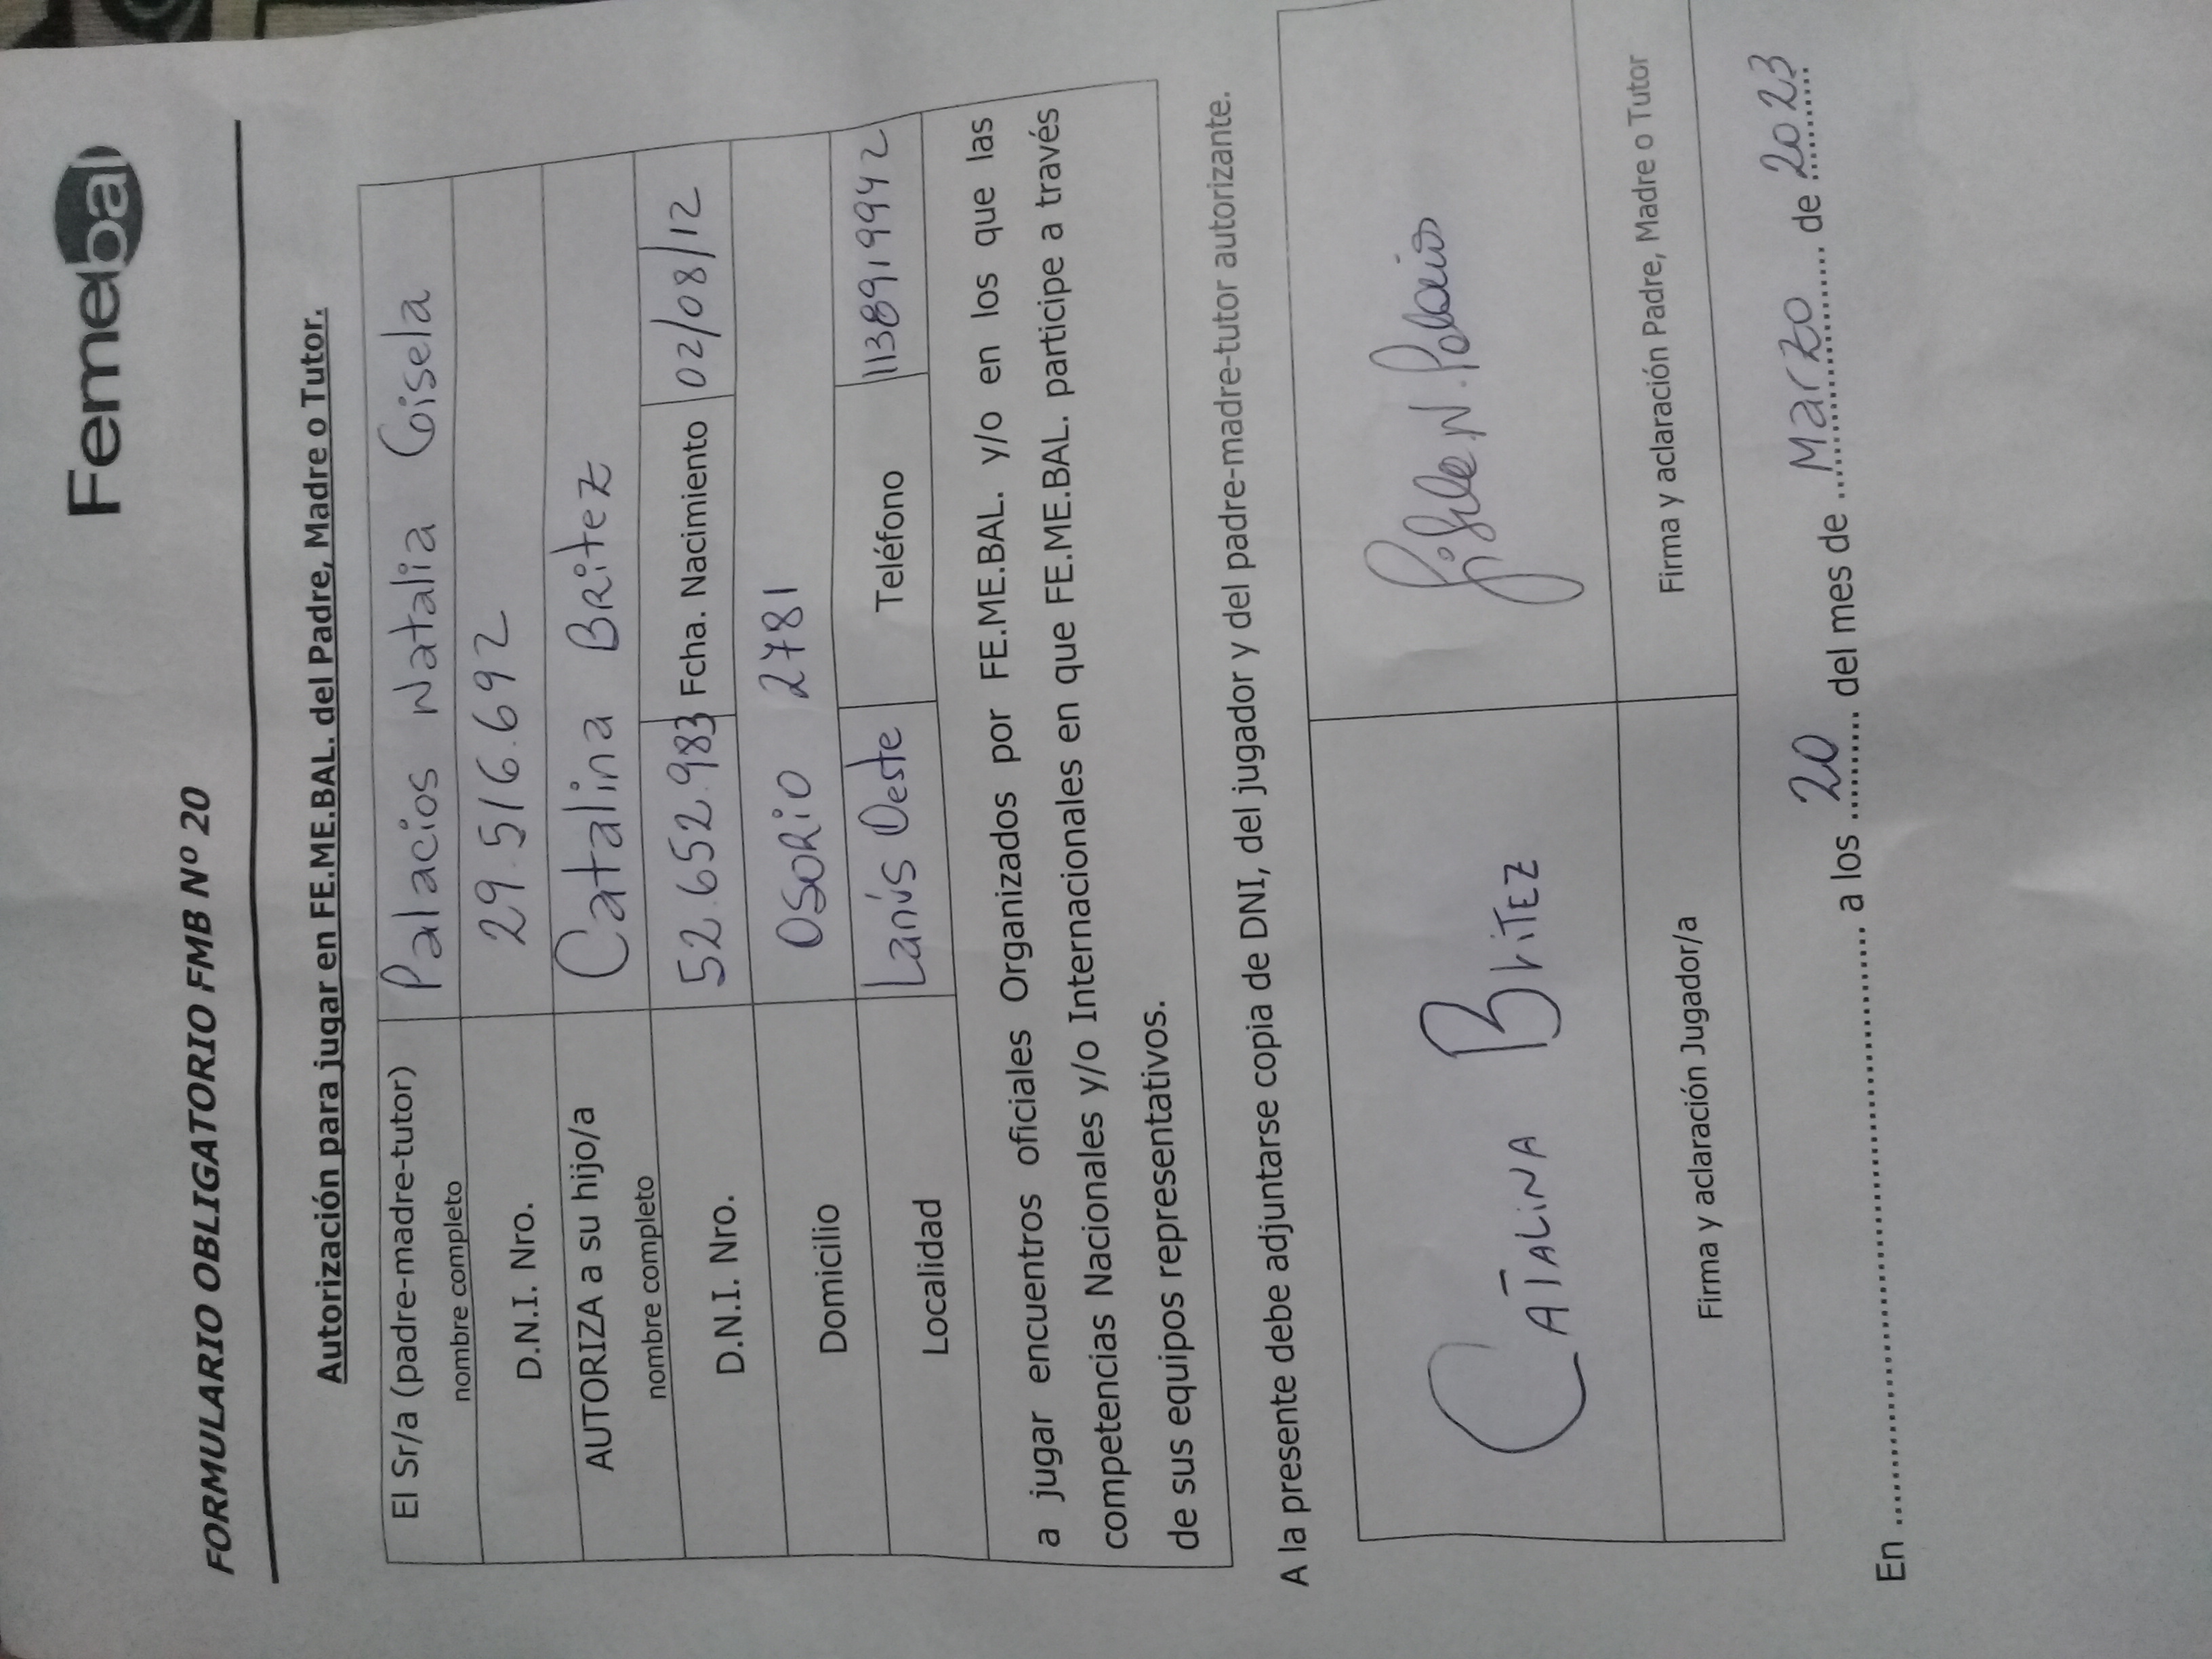 Femebal
FORMULARIO OBLIGATORIO FMB Nº 20
Autorización para jugar en FE.ME.BAL. del Padre, Madre o Tutor.
El Sr/a (padre-madre-tutor) nombre completo Palacios Natalia Gisela
D.N.I. Nro. 29.516.692
AUTORIZA a su hijo/a nombre completo Catalina Britez
D.N.I. Nro. 52.652.983 Fcha. Nacimiento 02/08/12
Domicilio Osorio 2781
Localidad Lanús Oeste Teléfono 1138919942
a jugar encuentros oficiales Organizados por FE.ME.BAL. y/o en los que las
competencias Nacionales y/o Internacionales en que FE.ME.BAL. participe a través
de sus equipos representativos.
A la presente debe adjuntarse copia de DNI, del jugador y del padre-madre-tutor autorizante.
CATALINA BRITEZ N. Palacios
Firma y aclaración Jugador/a Firma y aclaración Padre, Madre o Tutor
En ........................................ a los 20 del mes de Marzo de 2023